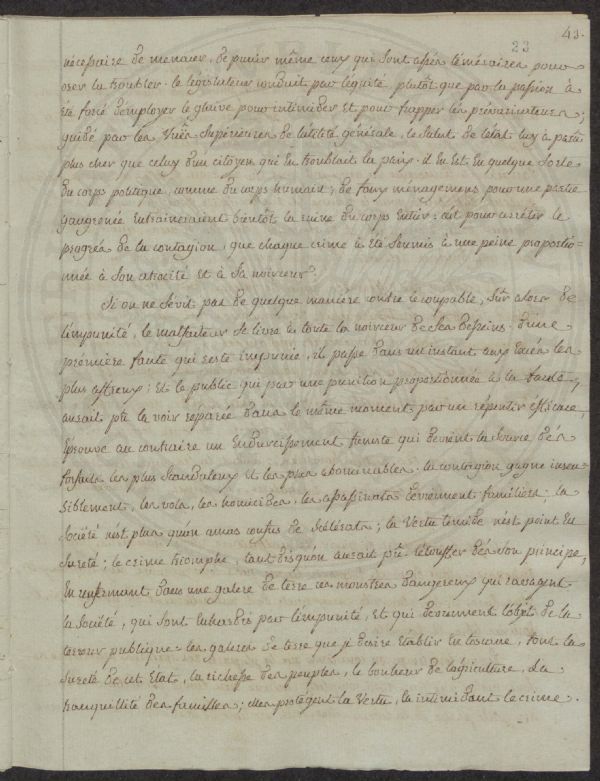 43.
23
nécessaire de menacer, de punir même ceux qui sont assés téméraires pour
oser la troubler. le législateur conduit par l'équité, plutôt que par la passion à
été forcé d'employer le glaive pour intimider et pour frapper les prévaricateurs;
guidé par les vuës supérieures de l'utilité générale, le salut de l'etat luy a parû
plus cher que celuy d'un citoyen qui en troublait la paix. il en est en quelque sorte
du corps politique, comme du corps humain; de faux ménagemens pour une partie
gangrenée entraineraient bientôt la ruine du corps entier: c'est pour arrêter le
progrés de la contagion, que chaque crime à été soumis à une peine proportio=
nnée à son atrocité et à sa noirceur.
Si on ne sévit pas de quelque manière contre le coupable, sûr alors de
l'impunité, le malfaiteur se livre à toute la noirceur de ses desseins. d'une
première faute qui reste impunie, il passe dans un instant aux excès les
plus affreux: et le public qui par une punition proportionnée à la faute,
aurait pû la voir réparée dans le même moment par un répentir efficace,
éprouve au contraire un endurcissement funeste qui devient la source des
forfaits les plus scandaleux et les plus abominables. la contagion gagne insen
siblement, les vols, les homicides, les assassinats deviennent familiers: la
société n'est plus qu'un amas confus de scélérats; la vertu timide n'est point en
sureté; le crime triomphe, tandis qu'on aurait pû l'étouffer dès son principe,
en enfermant dans une galere de terre ces monstres dangereux qui ravagent
la société, qui sont enhardis par l'impunité, et qui deviennent l'objet de la
terreur publique. les galeres de terre que je désire établir en toscane, sont la
sureté de cet Etat, la richesse des peuples, le bonheur de l'agriculture, la
tranquillité des familles; elles protégent la vertu, en intimidant le crime.